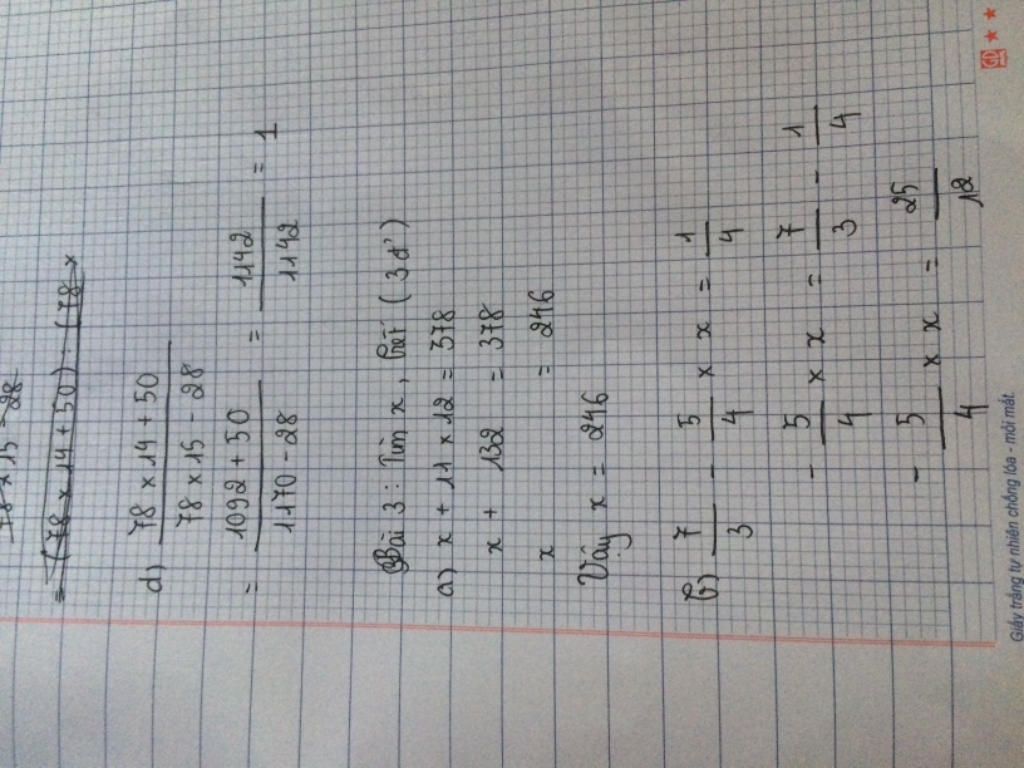 78 x 15 - 28
= (78 x 14 + 50) : (78 x
d) \frac{78 x 14 + 50}{78 x 15 - 28}
= \frac{1092 + 50}{1170 - 28} = \frac{1142}{1142} = 1
Bài 3: Tìm x, biết (3đ)
a) x + 11 x 12 = 378
x + 132 = 378
x = 246
Vậy x = 246
b) \frac{7}{3} - \frac{5}{4} x x = \frac{1}{4}
- \frac{5}{4} x x = \frac{7}{3} - \frac{1}{4}
- \frac{5}{4} x x = \frac{25}{12}
Giấy trắng tự nhiên chống lóa - mỏi mắt.